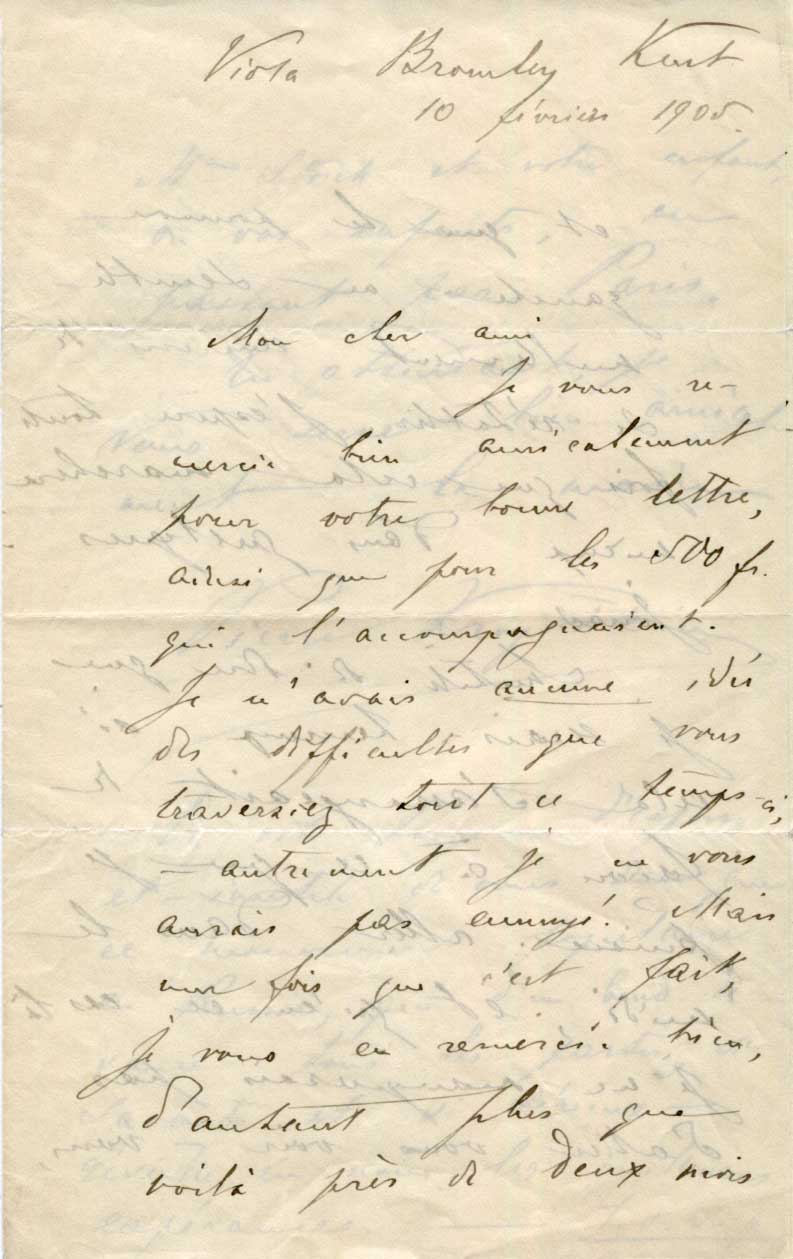 Viola Bromley Kent
10 février 1905
Mon cher ami
Je vous re-
mercie bien amicalement
pour votre bonne lettre,
ainsi que pour les 500 fr.
qui l'accompagnaient.
Je n'avais aucune idée
des difficultés que vous
traversiez tout ce temps-ci,
– autrement je ne vous
aurais pas ennuyé. Mais
une fois que c'est fait,
je vous en remercie bien,
d'autant plus que
voilà près de deux mois